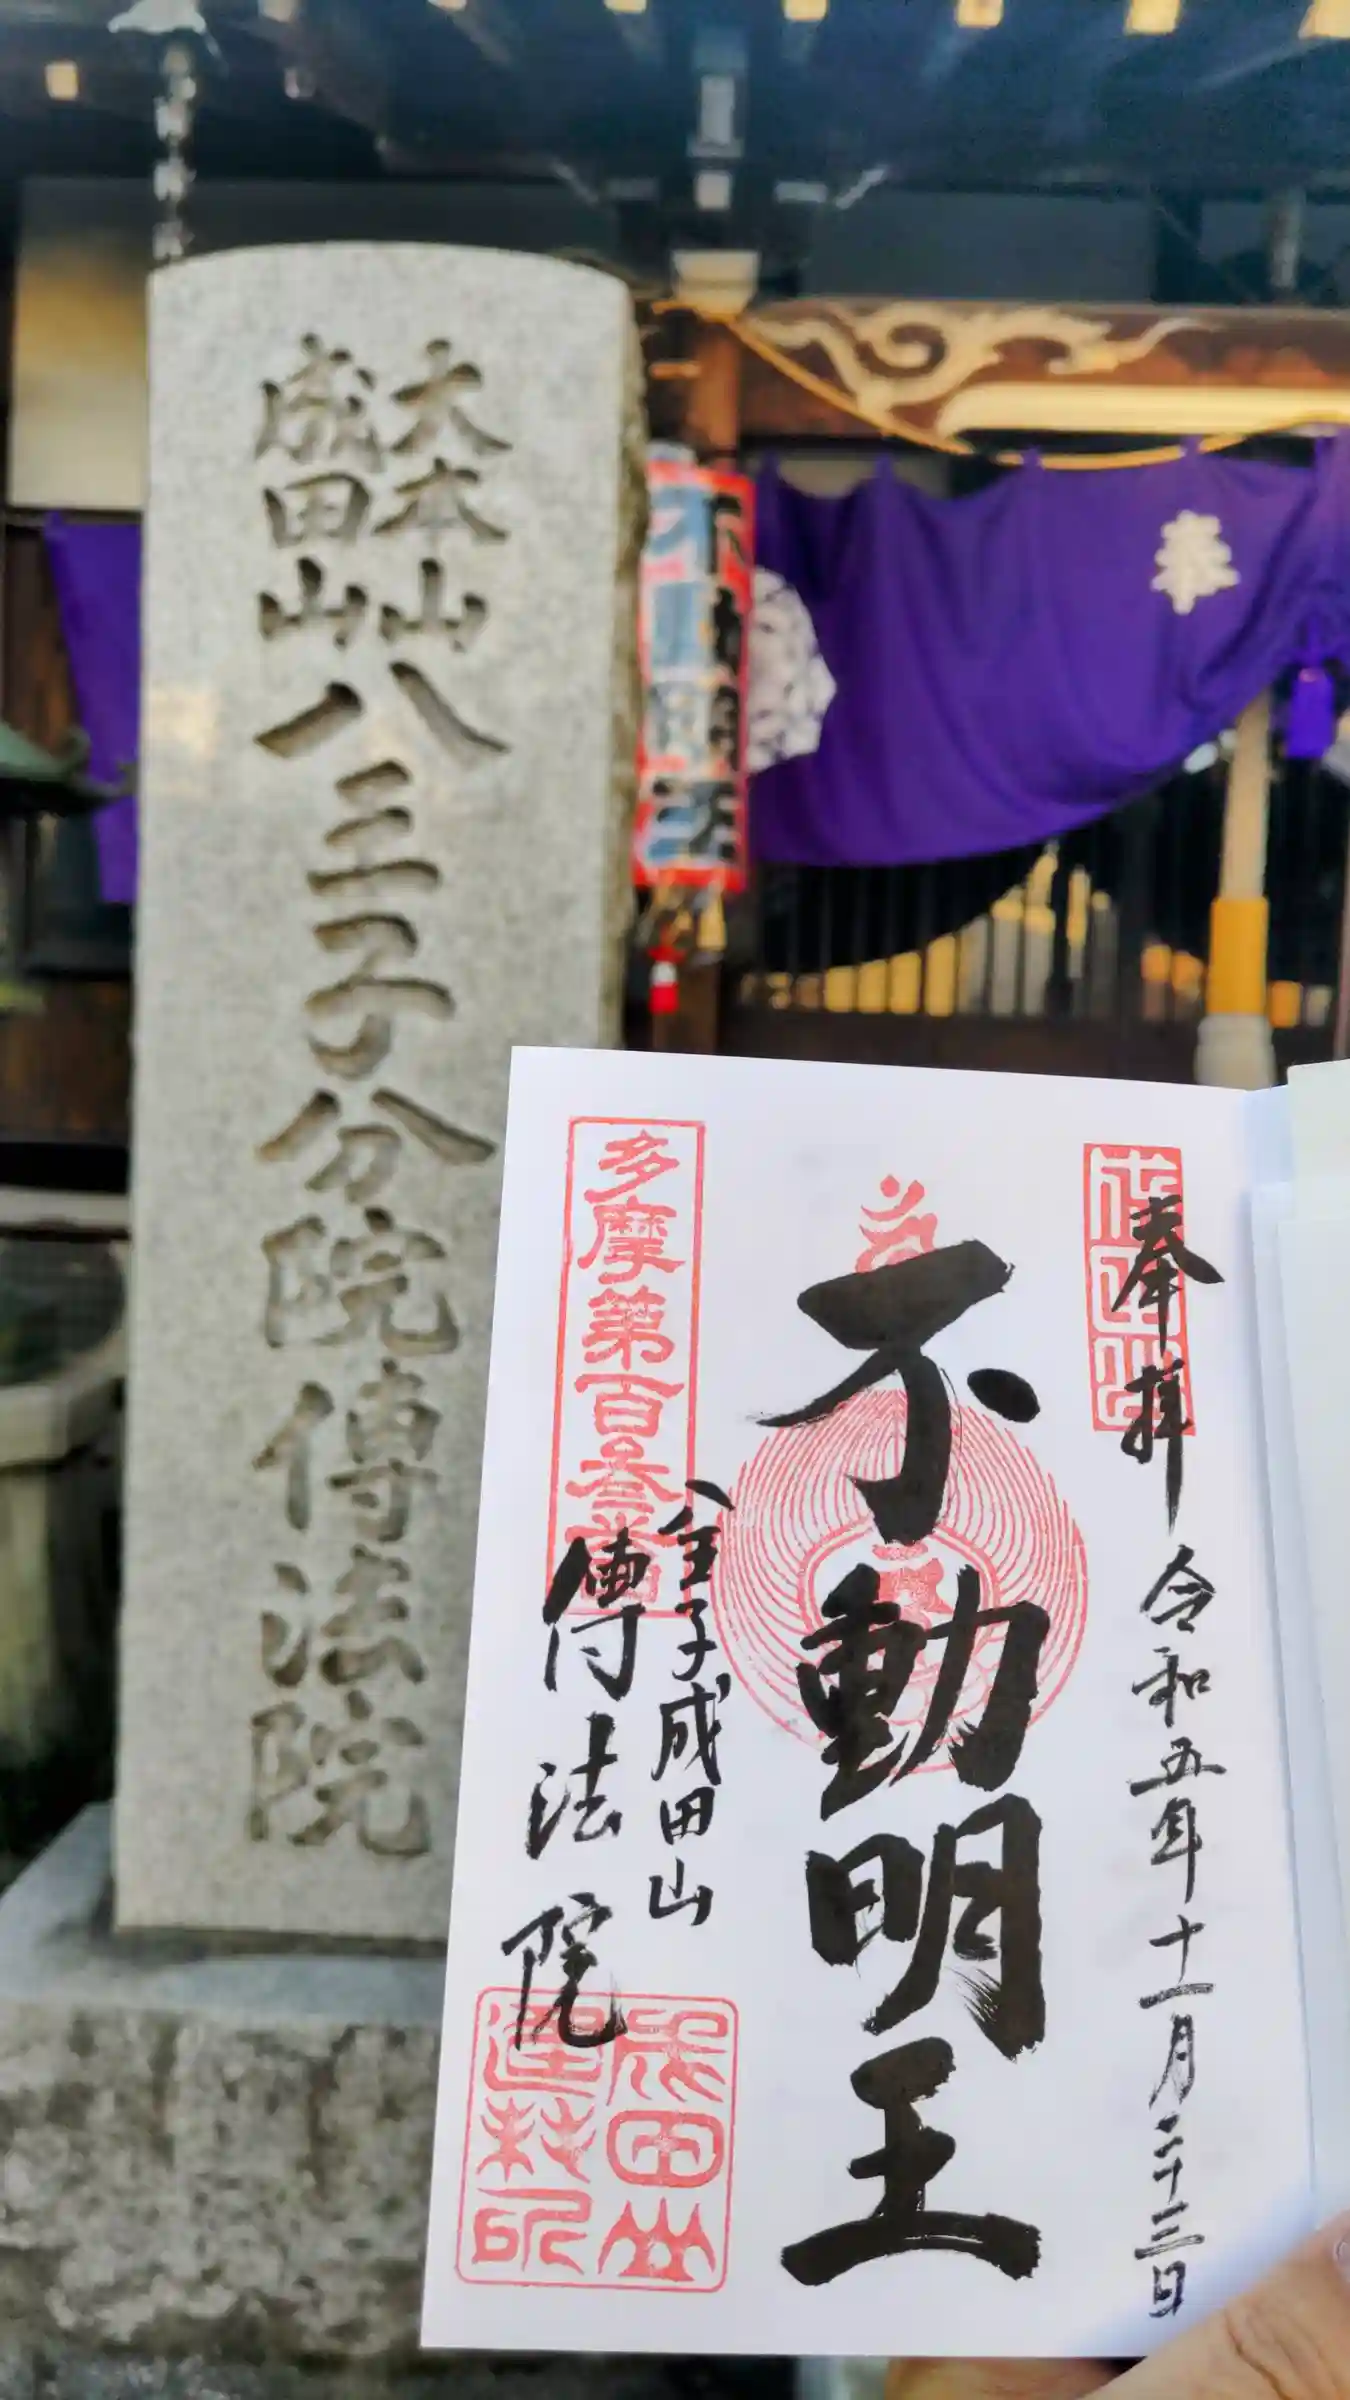 大本山
成田山
八王子分院傳法院
奉
奉拝
令和五年十一月二十三日
成田山
不動明王
多摩第百参番
八王子成田山
傳法院
成田山